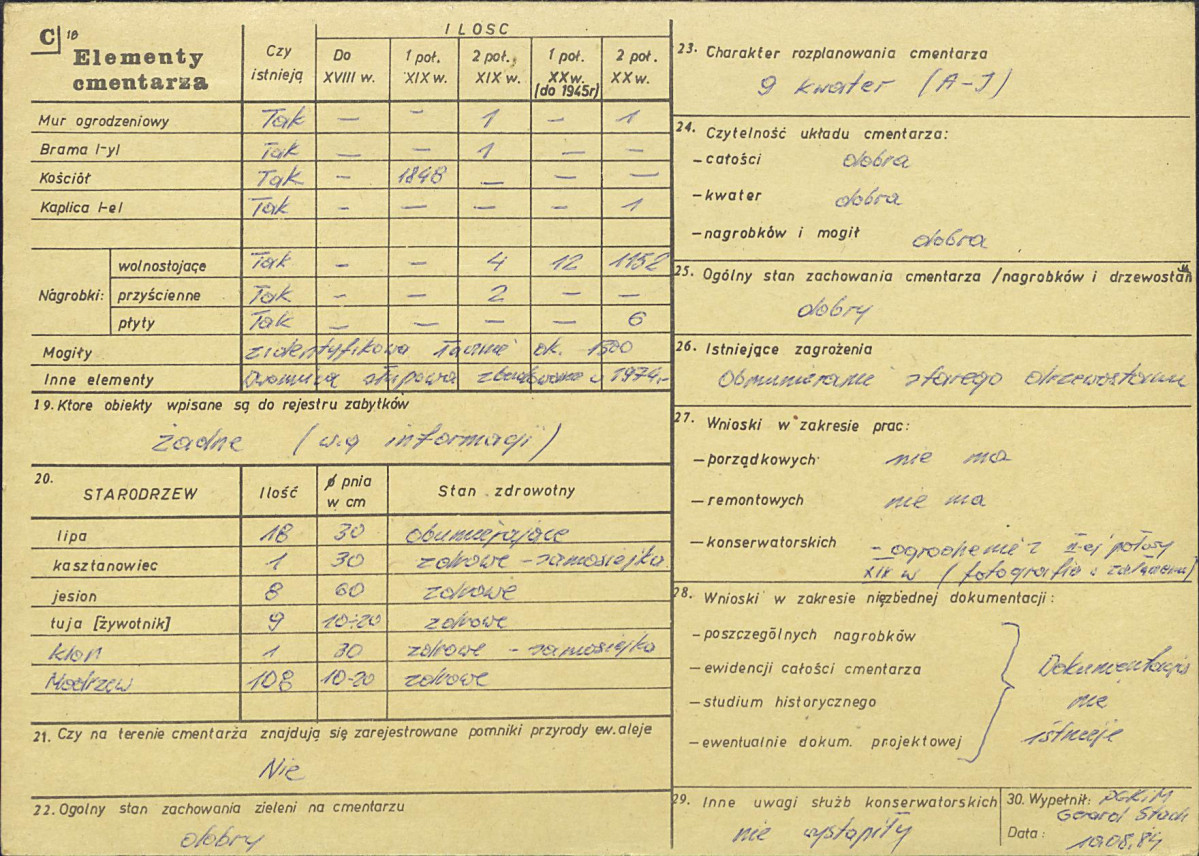 C 18
Elementy cmentarza
Czy istnieją
ILOSC
Do XVIII w.
1 poł. XIX w.
2 poł. XIX w.
1 poł. XX w. (do 1945r)
2 poł. XX w.
Mur ogrodzeniowy Tak — — 1 — 1
Brama /-y/ Tak — — 1 — —
Kościół Tak — 1848 — — —
Kaplica /-e/ Tak — — — — 1
Nagrobki:
wolnostojące Tak — — 4 12 1152
przyścienne Tak — — 2 — —
płyty Tak — — — — 6
Mogiły zidentyfikowa łącznie ok. 1500
Inne elementy słupowa zbudowana w 1974 r.
19. Ktore obiekty wpisane są do rejestru zabytków
żadne (w.g informacji)
20.
STARODRZEW Ilość ø pnia w cm Stan zdrowotny
lipa 18 30 obumierające
kasztanowiec 1 30 zdrowe - samosiejka
jesion 8 60 zdrowe
tuja [żywotnik] 9 10÷20 zdrowe
klon 1 30 zdrowe - samosiejka
Modrzew 108 10-20 zdrowe
21. Czy na terenie cmentarza znajdują się zarejestrowane pomniki przyrody ew. aleje
Nie
22. Ogolny stan zachowania zieleni na cmentarzu
dobry
23. Charakter rozplanowania cmentarza
9 kwater (A-J)
24. Czytelność układu cmentarza:
- całości dobra
- kwater dobra
- nagrobków i mogił dobra
25. Ogólny stan zachowania cmentarza /nagrobków i drzewostan
dobry
26. Istniejące zagrożenia
Obumieranie starego drzewostanu
27. Wnioski w zakresie prac:
- porządkowych nie ma
- remontowych nie ma
- konserwatorskich - ogrodzenie z II-ej połowy
XIX w (fotografia w załączeniu)
28. Wnioski w zakresie niezbednej dokumentacji:
- poszczególnych nagrobków
- ewidencji całości cmentarza
- studium historycznego
- ewentualnie dokum. projektowej
Dokumentacja
nie
istnieje
29. Inne uwagi służb konserwatorskich
nie wystąpiły
30. Wypełnił: PGKiM
Gerard Stach
Data: 10.08.84